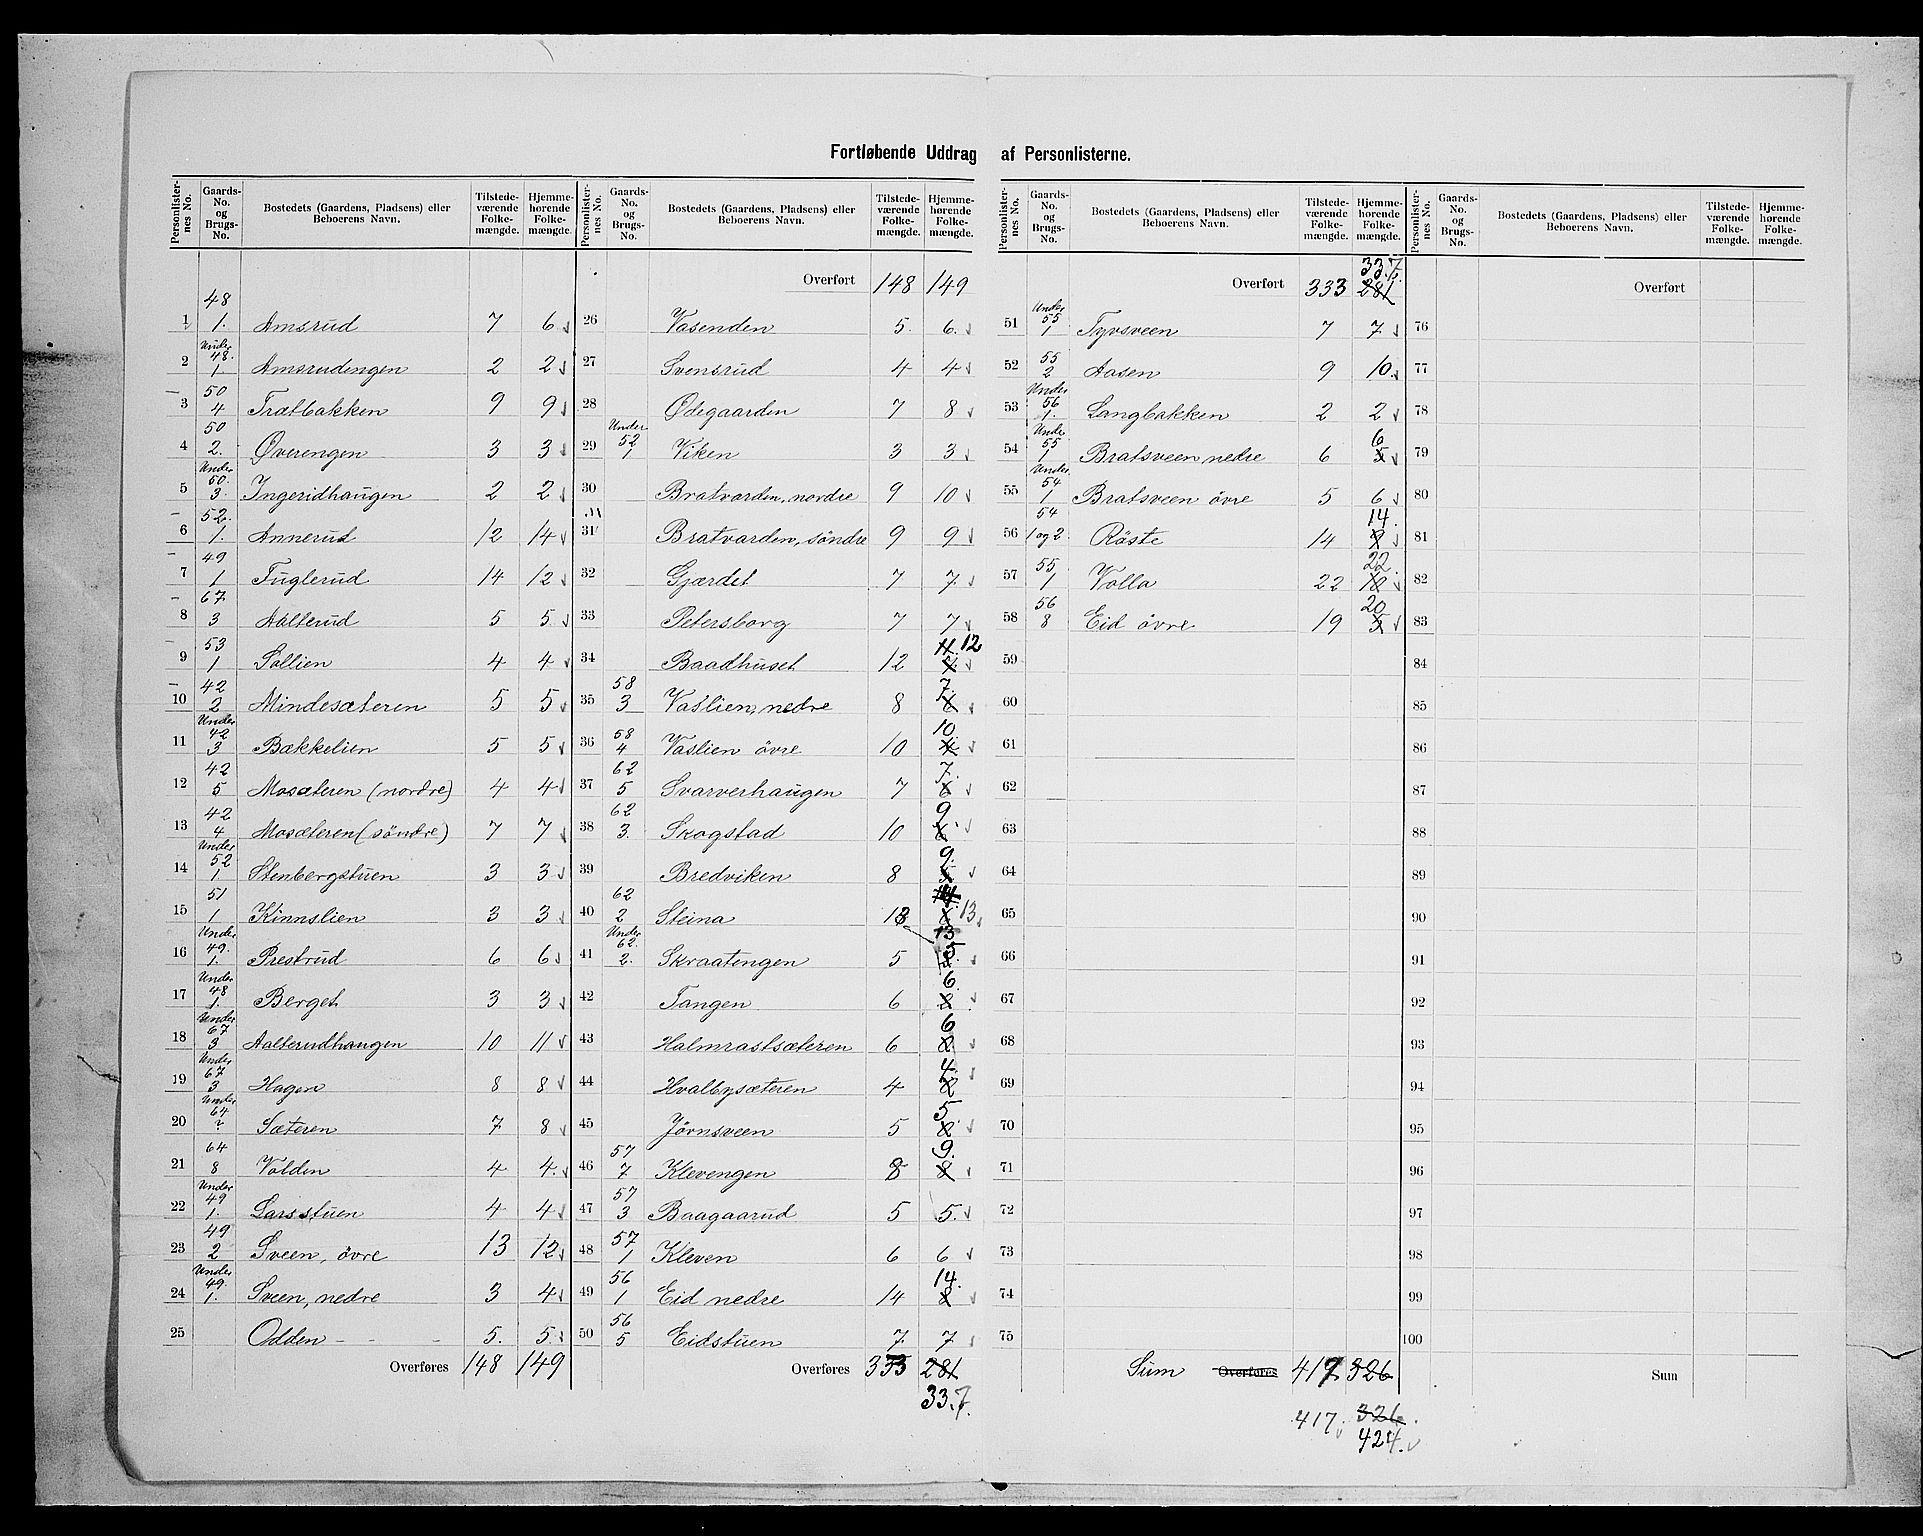 Fortløbende Uddrag af Personlisterne.
Personlisternes No. | Gaards-No. og Brugs-No. | Bostedets (Gaardens, Pladsens) eller Beboerens Navn. | Tilstedeværende Folkemængde. | Hjemmehørende Folkemængde.
1 | 48 1. | Amsrud | 7 | 6
2 | Under 48. 1 | Amsrudengen | 2 | 2
3 | 50 4 | Trætbakken | 9 | 9
4 | 50 2. | Øverengen | 3 | 3
5 | Under 50. 3. | Ingeridhaugen | 2 | 2
6 | 52. 1. | Annerud | 12 | 14
7 | 49 1 | Fuglerud | 14 | 12
8 | 67. 3 | Aalterud | 5 | 5
9 | 53 1 | Sollien | 4 | 4
10 | 42 2 | Mindesæteren | 5 | 5
11 | Under 42 3 | Bækkelien | 5 | 5
12 | 42 5 | Mosæteren (nordre) | 4 | 4
13 | 42 4 | Mosæteren (söndre) | 7 | 7
14 | Under 52 1 | Stenbergstuen | 3 | 3
15 | 51 1 | Kinnslien | 3 | 3
16 | Under 49. 1. | Prestrud | 6 | 6
17 | Under 48 1. | Berget | 3 | 3
18 | Under 67 3 | Aalterudhaugen | 10 | 11
19 | Under 67 3 | Hagen | 8 | 8
20 | Under 64 ? | Sæteren | 7 | 8
21 | 64 8 | Volden | 4 | 4.
22 | Under 49 1. | Larsstuen | 4 | 4
23 | 49 2 | Sveen, övre | 13 | 12
24 | Under 49. 1. | Sveen, nedre | 3 | 4
25 | Odden - - - | 5. | 5.
Overføres 148 149
Personlisternes No. | Gaards-No. og Brugs-No. | Bostedets (Gaardens, Pladsens) eller Beboerens Navn. | Tilstedeværende Folkemængde. | Hjemmehørende Folkemængde.
Overført 148 149
26 | Vasenden | 5. | 6.
27 | Svensrud | 4 | 4
28 | Ødegaarden | 7 | 8
29 | Under 52 1 | Viken | 3 | 3
30 | Bratvarden, nordre | 9 | 10
31 | Bratvarden, söndre | 9 | 9
32 | Gjærdet | 7 | 7.
33 | Petersborg | 7 | 7
34 | Baadhuset | 12 | 11. 12
35 | 58 3 | Vaslien, nedre | 8 | 7.
36 | 58 4 | Vaslien övre | 10 | 10.
37 | 62 5 | Svarverhaugen | 7 | 7.
38 | 62 3. | Skogstad | 10 | 9
39 | Bredviken | 8 | 9.
40 | 62 2 | Steina | 13 | 13
41 | Under 62. 2. | Skraatengen | 5 | 5.
42 | Tangen | 6 | 6.
43 | Halmrastsæteren | 6 | 6 8
44 | Hvalbysæteren | 4 | 4. 8
45 | Jörnsveen | 5 | 5 8
46 | 57 7 | Klevengen | 8 | 9. 8
47 | 57 3 | Baagaarud | 5 | 5.
48 | 57 1 | Kleven | 6 | 6
49 | 56 1 | Eid nedre | 14 | 14. 8
50 | 56 5 | Eidstuen | 7. | 7
Overføres 333 281
337.
Personlisternes No. | Gaards-No. og Brugs-No. | Bostedets (Gaardens, Pladsens) eller Beboerens Navn. | Tilstedeværende Folkemængde. | Hjemmehørende Folkemængde.
Overført 333 337. 281
51 | Under 55 1 | Tyvsveen | 7 | 7
52 | 55 2 | Aasen | 9 | 10
53 | Under 56 1. | Langbakken | 2 | 2
54 | Under 55 1 | Bratsveen, nedre | 6 | 6 5
55 | Under 54 1 | Bratsveen övre | 5 | 6
56 | 54 1 og 2. | Röste | 14 | 14.
57 | 55 1 | Volla | 22 | 22.
58 | 56 8 | Eid övre | 19 | 20 5
59
60
61
62
63
64
65
66
67
68
69
70
71
72
73
74
75
Sum Overføres 417 326
417. 326.
424.
Personlisternes No. | Gaards-No. og Brugs-No. | Bostedets (Gaardens, Pladsens) eller Beboerens Navn. | Tilstedeværende Folkemængde. | Hjemmehørende Folkemængde.
Overført
76
77
78
79
80
81
82
83
84
85
86
87
88
89
90
91
92
93
94
95
96
97
98
99
100
Sum